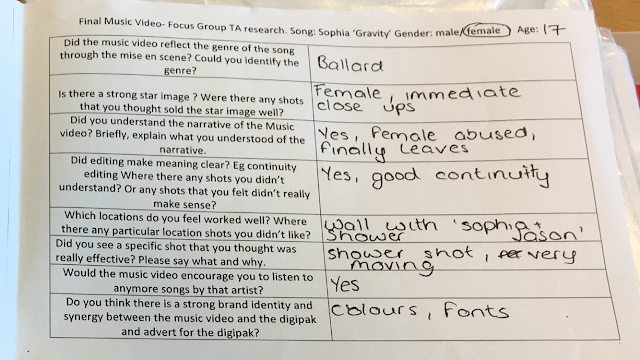 Final Music Video- Focus Group TA research. Song: Sophia 'Gravity' Gender: male/female Age: 17
Did the music video reflect the genre of the song
through the mise en scene? Could you identify the
genre?
Ballard
Is there a strong star image ? Were there any shots
that you thought sold the star image well?
Female, immediate
close ups
Did you understand the narrative of the Music
video? Briefly, explain what you understood of the
narrative.
Yes, female abused,
finally leaves
Did editing make meaning clear? Eg continuity
editing Where there any shots you didn't
understand? Or any shots that you felt didn't really
make sense?
Yes, good continuity
Which locations do you feel worked well? Where
there any particular location shots you didn't like?
Wall with 'sophia +
Jason'
Shower
Did you see a specific shot that you thought was
really effective? Please say what and why.
shower shot, very
moving
Would the music video encourage you to listen to
anymore songs by that artist?
Yes
Do you think there is a strong brand identity and
synergy between the music video and the digipak
and advert for the digipak?
Colours, Fonts